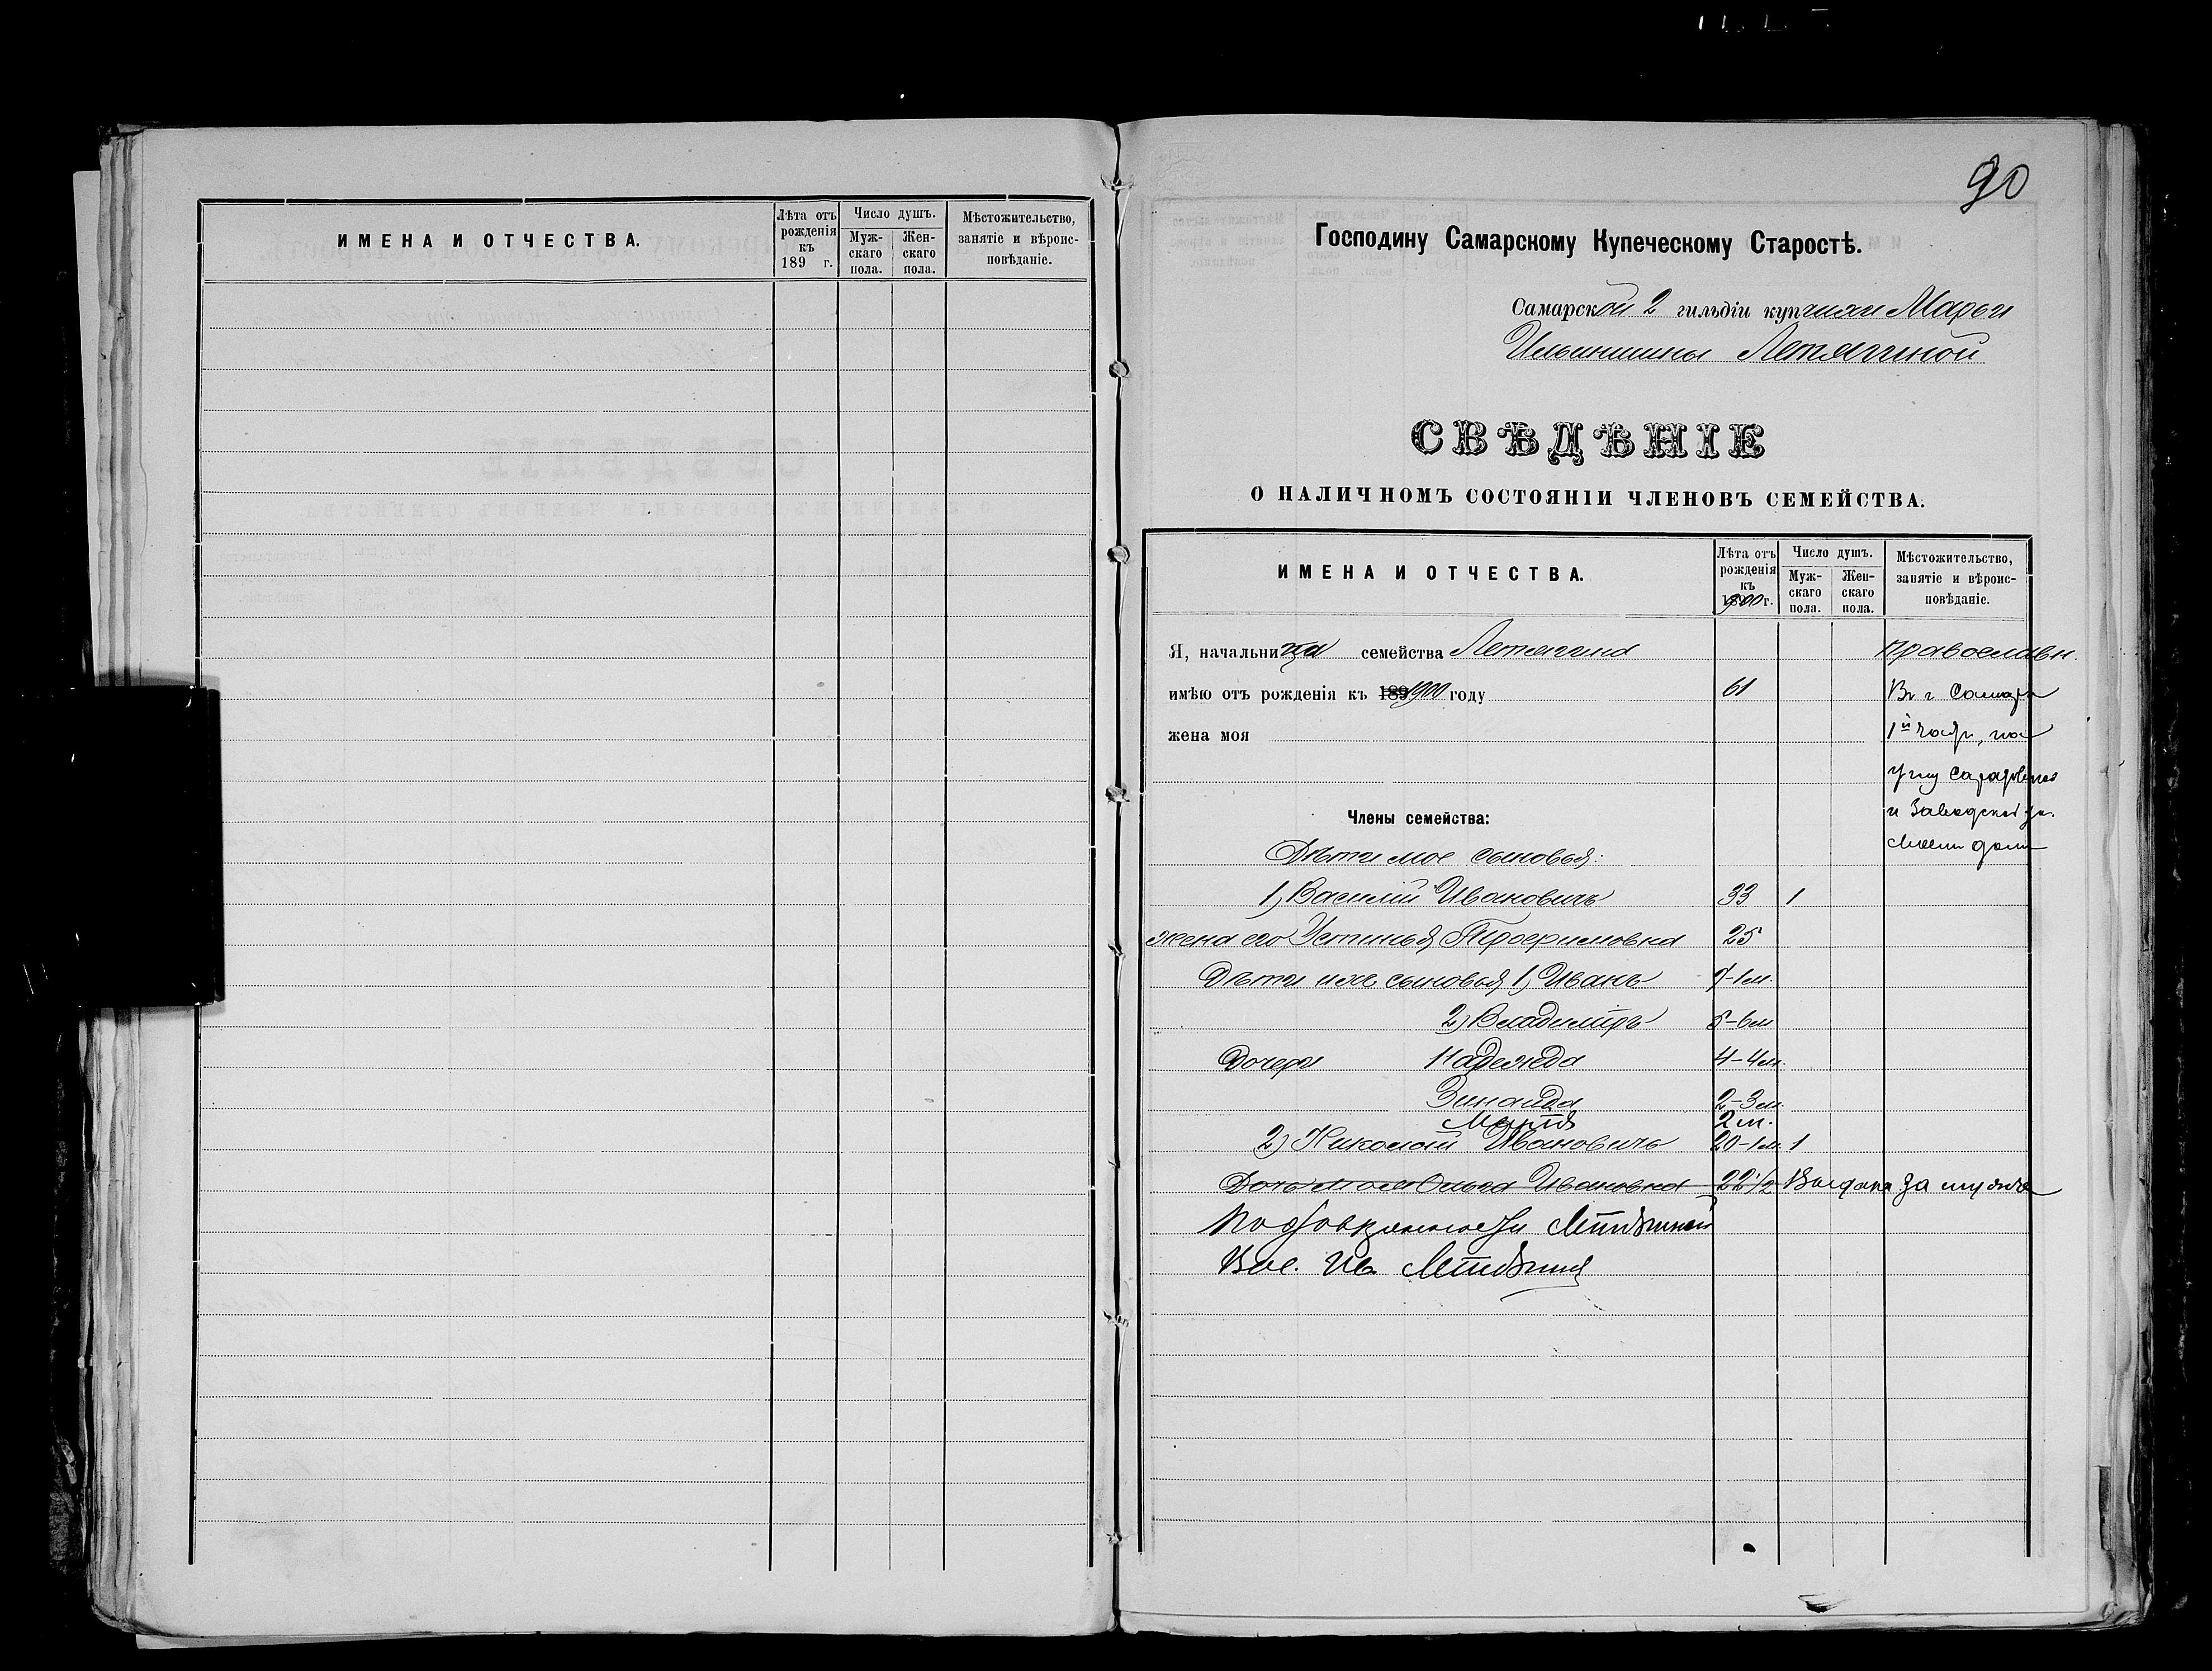 ИМЕНА И ОТЧЕСТВА.
Лѣта отъ рожденія къ 189 г.
Число душъ.
Мужскаго пола.
Женскаго пола.
Мѣстожительство, занятіе и вѣроисповѣданіе.
90
Господину Самарскому Купеческому Старостѣ.
Самарской 2 гильдіи купчихи Марьи
Ильинишны Летягиной
СВѢДѢНІЕ
О НАЛИЧНОМЪ СОСТОЯНІИ ЧЛЕНОВЪ СЕМЕЙСТВА.
ИМЕНА И ОТЧЕСТВА.
Лѣта отъ рожденія къ 1900 г.
Число душъ.
Мужскаго пола.
Женскаго пола.
Мѣстожительство, занятіе и вѣроисповѣданіе.
Я, начальница семейства Летягина православн.
имѣю отъ рожденія къ 189 1900 году 61 Въ г Самарѣ
жена моя 1й части, на
углу Саратовской
Члены семейства: и Заводской ул.
Дѣти мое сыновья: своемъ домѣ
1, Василій Ивановичъ 33 1
жена его Устинья Трофимовна 25
Дѣти ихъ сыновья 1, Иванъ 7-1м.
2) Владиміръ 5-6м
Дочери Надежда 4-4м.
Зинаида 2-3м.
Марія 2м.
2) Николай Ивановичъ 20-1м. 1
Дочь моя Ольга Ивановна 22 1/2 Выдана за мужъ
По довѣренности Летягиной
Вас. Ив. Летягинъ